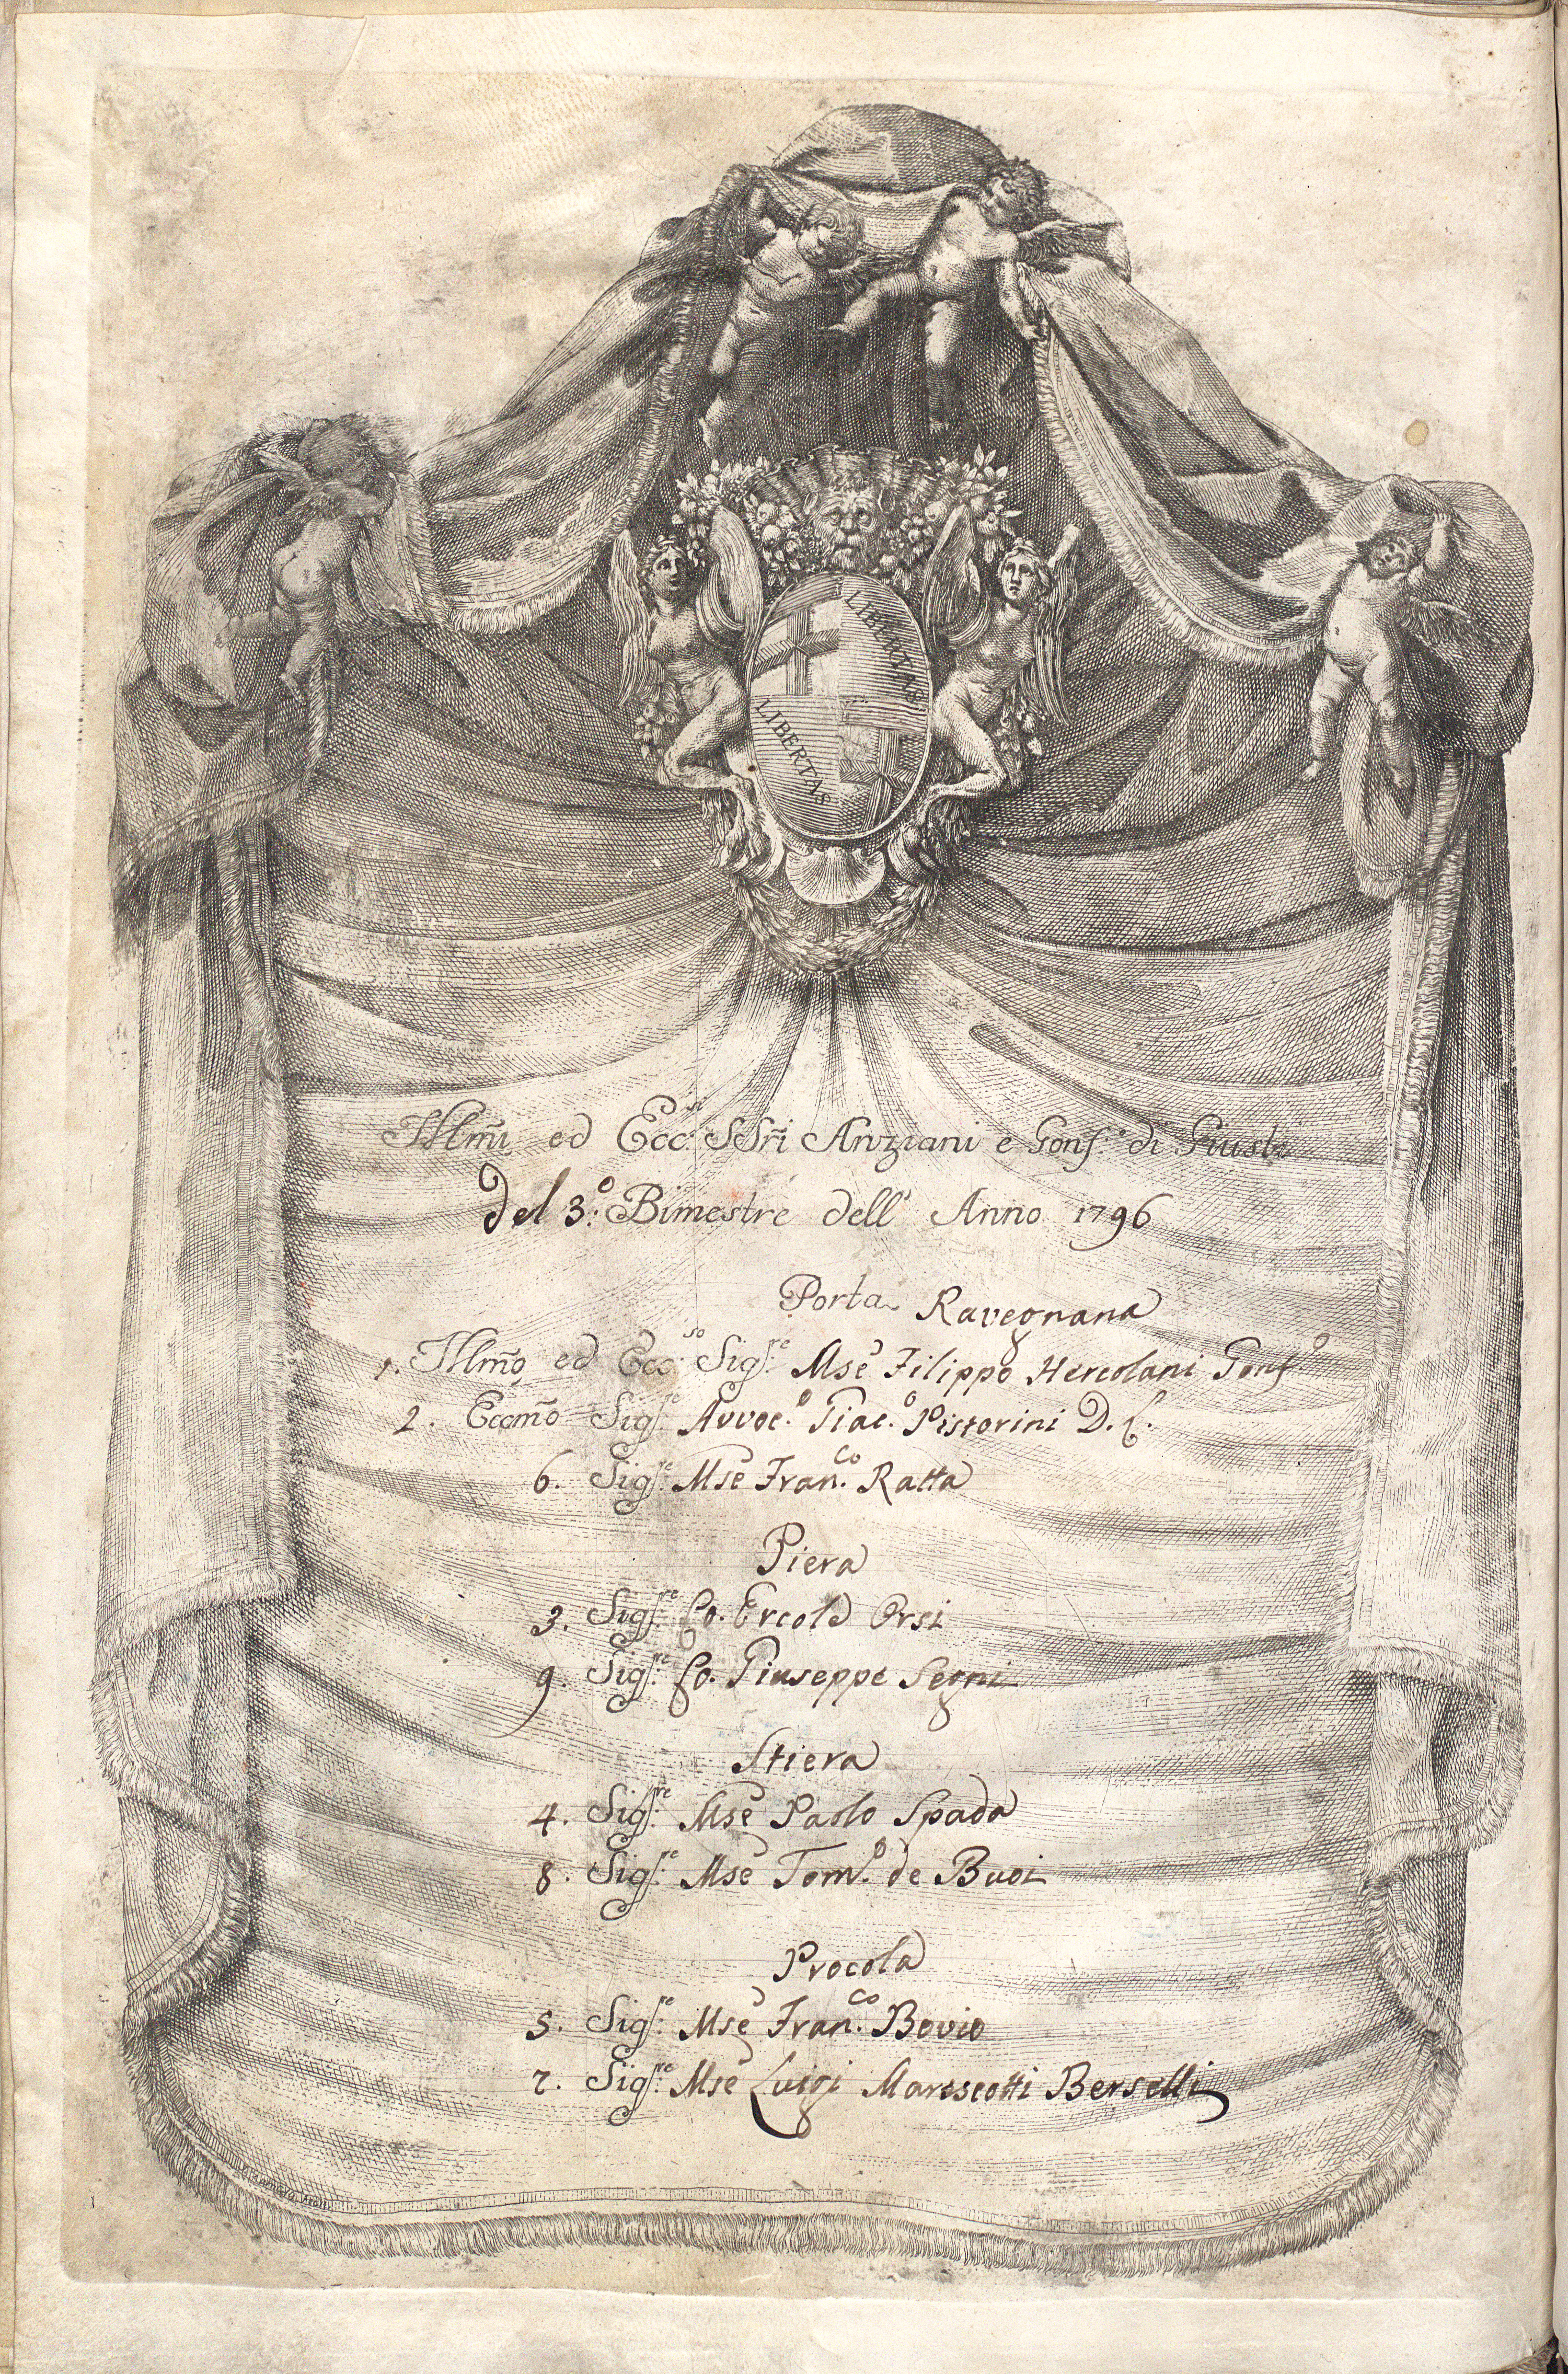 LIBERTAS
LIBERTAS
Illm̃i ed Ecc.si SSri Anziani e Gonf.e di Giust.a
del 3.o Bimestre dell' Anno 1796
Porta Ravegnana
1. Illm̃o ed Ecc.so Sig.re Mse Filippo Hercolani Gonf.o
2. Eccm̃o Sig.re Avvoc.o Giac.o Pistorini D. C.
6. Sig.re Mse Fran.co Ratta
Piera
3. Sig.re Co. Ercole Orsi
9. Sig.re Co. Giuseppe Segni
Stiera
4. Sig.re Mse Paolo Spada
8. Sig.re Mse Tom.o de Buoi
Procola
5. Sig.re Mse Fran.co Bovio
7. Sig.re Mse Luigi Marescotti Berselli